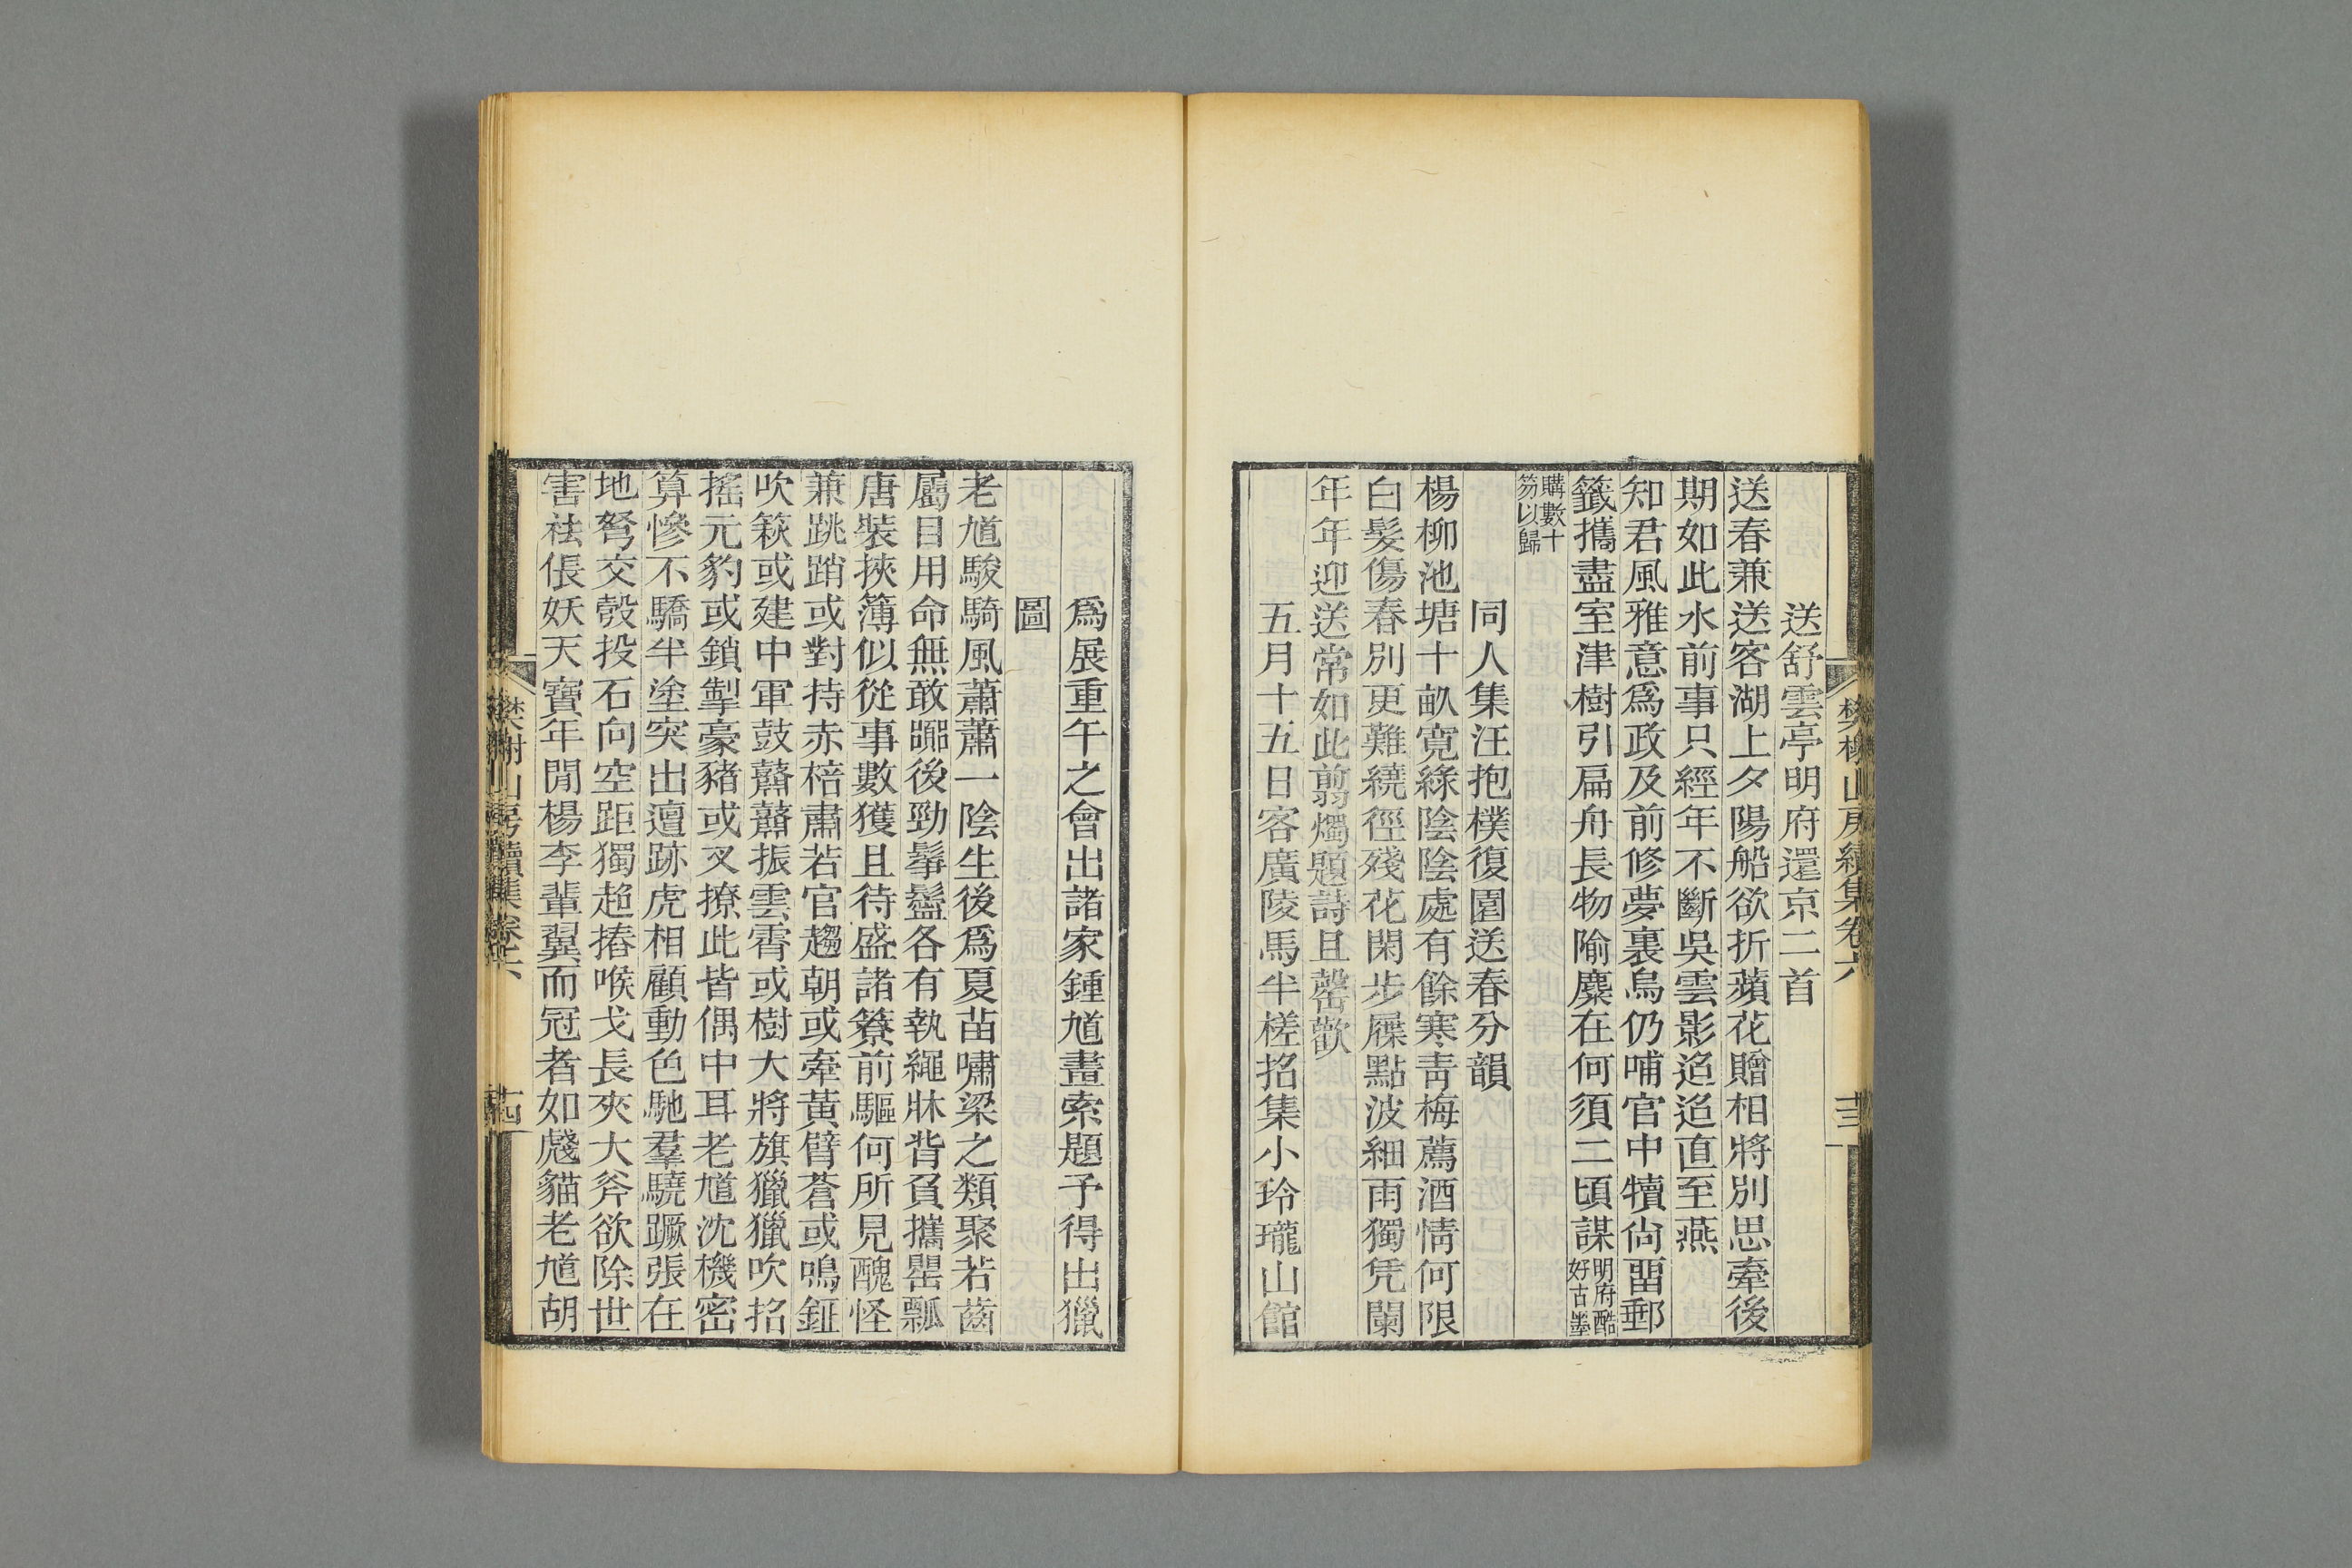 樊榭山房續集卷六
十三
送舒雲亭明府還京二首
送春兼送客湖上夕陽船欲折蘋花贈相將別思牽後
期如此水前事只經年不斷吳雲影迢迢直至燕
知君風雅意爲政及前修夢裏烏仍哺官中犢尙畱郵
籤攜盡室津樹引扁舟長物隃麋在何須二頃謀明府酷好古墨
購數十笏以歸
同人集汪抱樸復園送春分韻
楊柳池塘十畝寛綠陰陰處有餘寒靑梅薦酒情何限
白髮傷春別更難繞徑殘花閑步屧點波細雨獨凭闌
年年迎送常如此翦燭題詩且罄歡
五月十五日客廣陵馬半槎招集小玲瓏山館
爲展重午之會出諸家鍾馗畫索題予得出獵
圖
老馗駿騎風蕭蕭一陰生後爲夏苗嘯梁之類聚若齒
屬目用命無敢嚻後勁髼鬙各有執繩牀背負攜罌瓢
唐裝挾簿似從事數獲且待盛諸簝前驅何所見醜怪
兼跳踃或對持赤棓肅若官趨朝或牽黃臂蒼或鳴鉦
吹篍或建中軍鼓鼛鼛振雲霄或樹大將旗獵獵吹招
搖元豹或鎖掣豪豬或叉撩此皆偶中耳老馗沈機密
算慘不驕半塗突出邅跡虎相顧動色馳羣驍蹶張在
地弩交彀投石向空距獨超摏喉戈長夾大斧欲除世
害祛倀妖天寶年閒楊李輩翼而冠者如虥貓老馗胡
樊榭山房續集卷六
十四